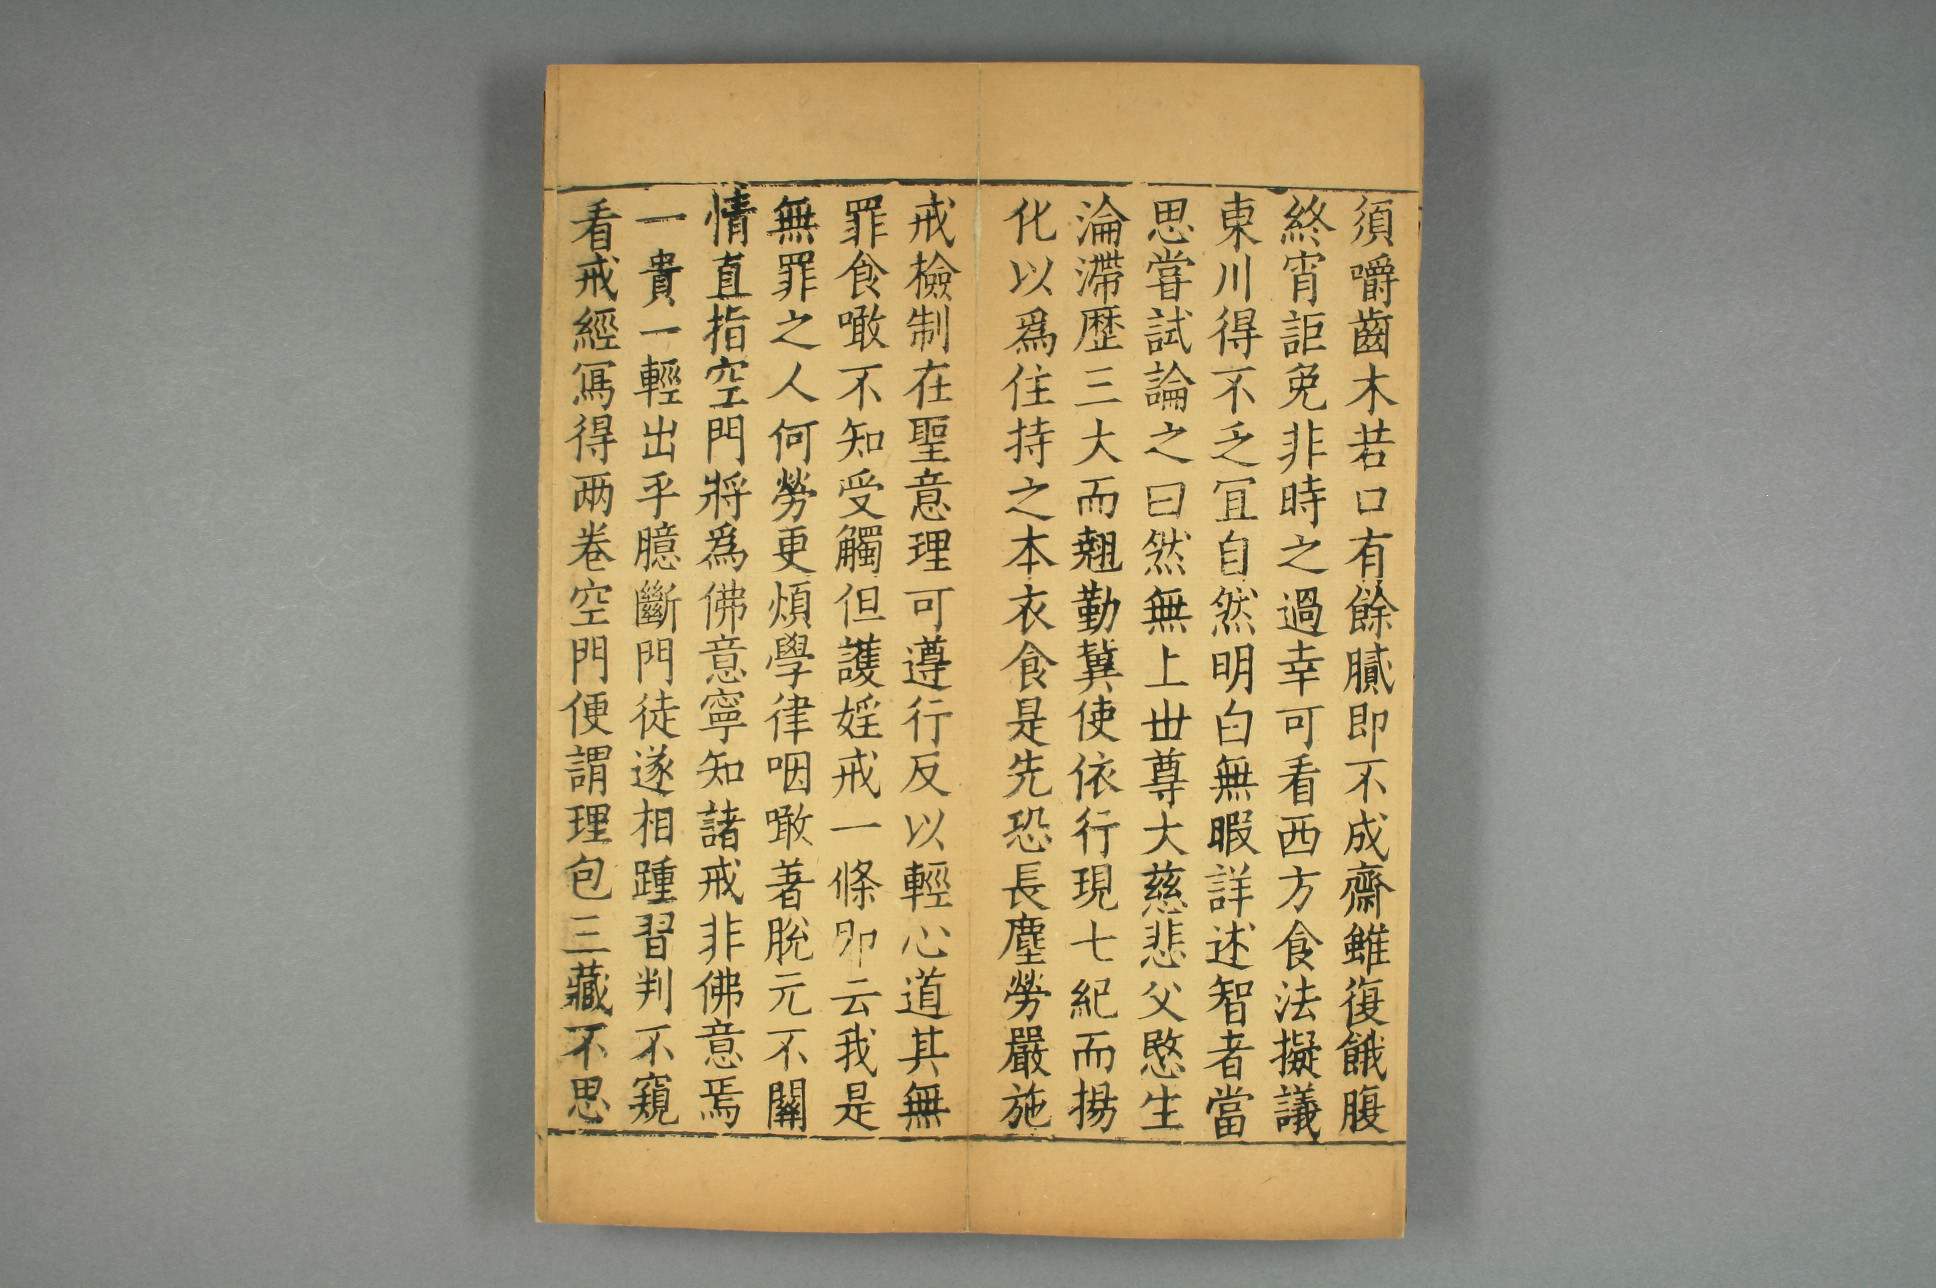 須嚼齒木若口有餘膩即不成齋雖復餓腹
終宵詎免非時之過幸可看西方食法擬議
東川得不乏冝自然明白無暇詳述智者當
思甞試論之曰然無上丗尊大慈悲父愍生
淪滯歷三大而翹勤冀使依行現七紀而揚
化以爲住持之本衣食是先恐長塵勞嚴施
戒檢制在聖意理可遵行反以輕心道其無
罪食噉不知受觸但護婬戒一條卽云我是
無罪之人何勞更煩學律咽噉著脫元不關
情直指空門將爲佛意寧知諸戒非佛意焉
一貴一輕出乎臆斷門徒遂相踵習判不窺
看戒經寫得兩卷空門便謂理包三藏不思